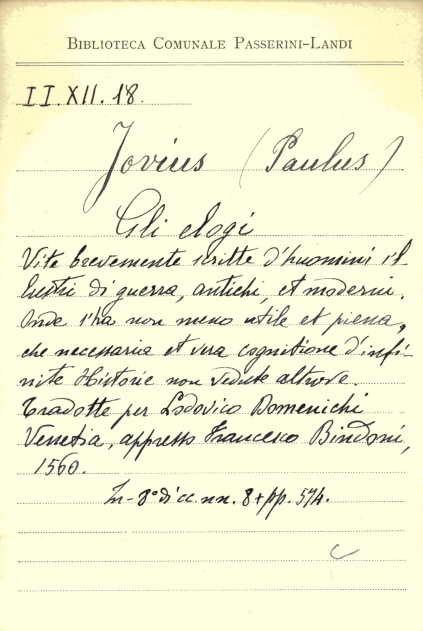 BIBLIOTECA COMUNALE PASSERINI-LANDI
II. XII. 18.
Jovius (Paulus)
Gli elogi
Vite brevemente scritte d'huomini il-
lustri di guerra, antichi, et moderni.
Onde s'ha non meno utile et piena,
che necessaria et vera cognitione d'infi-
nite Historie non vedute altrove.
Tradotte per Lodovico Domenichi
Venetia, appresso Francesco Bindoni,
1560.
In-8° di cc. nn. 8+pp. 574.
C